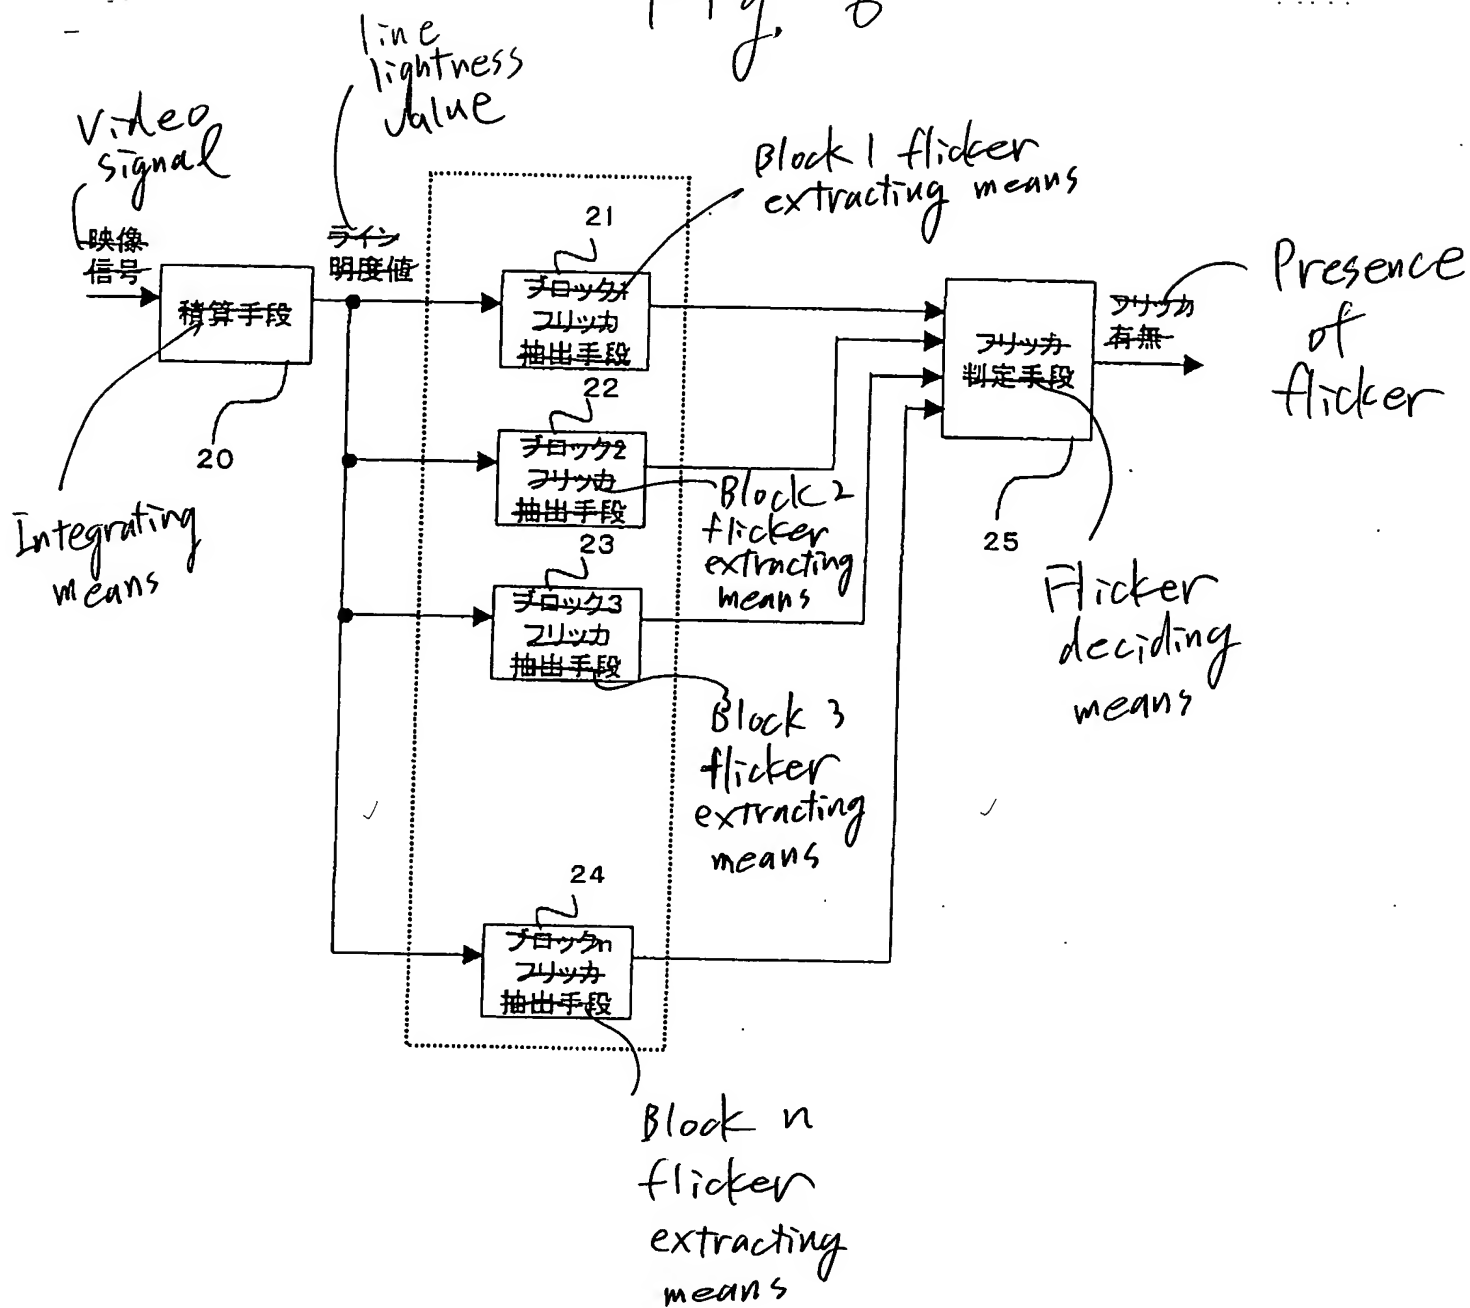 Fig. 8
line
lightness
value
Video
signal
Block 1 flicker
extracting means
映像
信号
ライン
明度値
21
ブロック1
フリッカ
抽出手段
積算手段
20
Integrating
means
22
ブロック2
フリッカ
抽出手段
Block 2
flicker
extracting
means
23
ブロック3
フリッカ
抽出手段
Block 3
flicker
extracting
means
24
ブロックn
フリッカ
抽出手段
Block n
flicker
extracting
means
フリッカ
判定手段
25
Flicker
deciding
means
フリッカ
有無
Presence
of
flicker